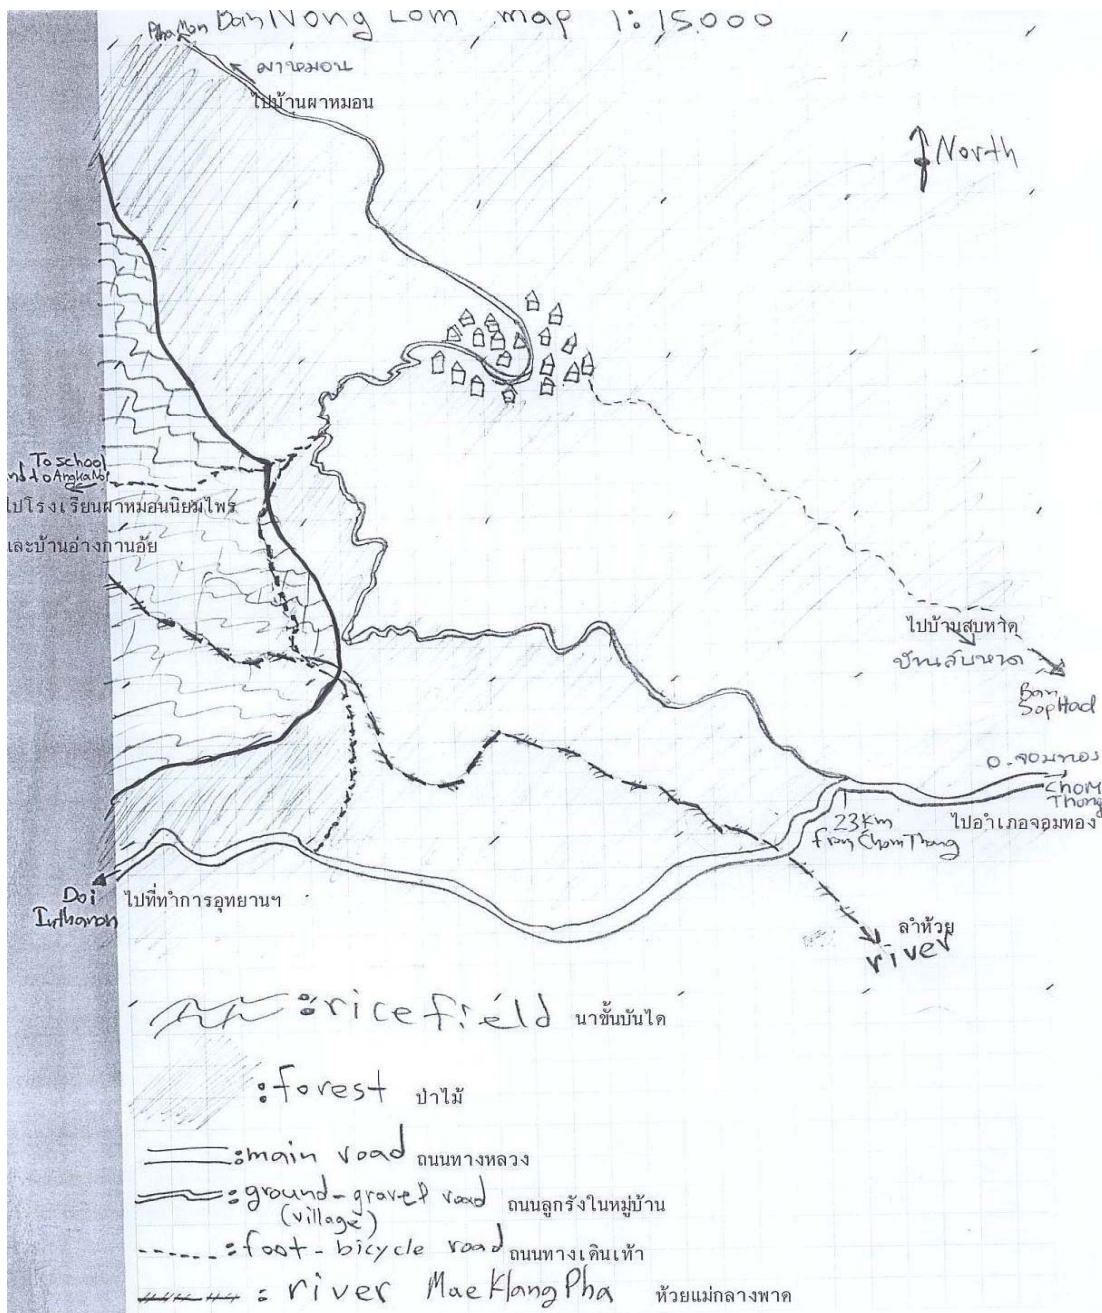 Ban Nong Lom map 1:15.000
Pha Mon
ผาหมอน
ไปบ้านผาหมอน
North
To school
and to Angka Noi
ไปโรงเรียนผาหมอนนิยมไพร
และบ้านอ่างกานอัย
ไปบ้านสบหาด
บ้านสบหาด
Ban
Sop Had
อ.จอมทอง
Chom
Thong
ไปอำเภอจอมทอง
23 Km
from Chom Thong
Doi
Inthanon
ไปที่ทำการอุทยานฯ
ลำห้วย
river
: rice field นาขั้นบันได
: forest ป่าไม้
: main road ถนนทางหลวง
: ground-gravel road ถนนลูกรังในหมู่บ้าน
(village)
: foot-bicycle road ถนนทางเดินเท้า
: river Mae Klang Pha ห้วยแม่กลางพาด